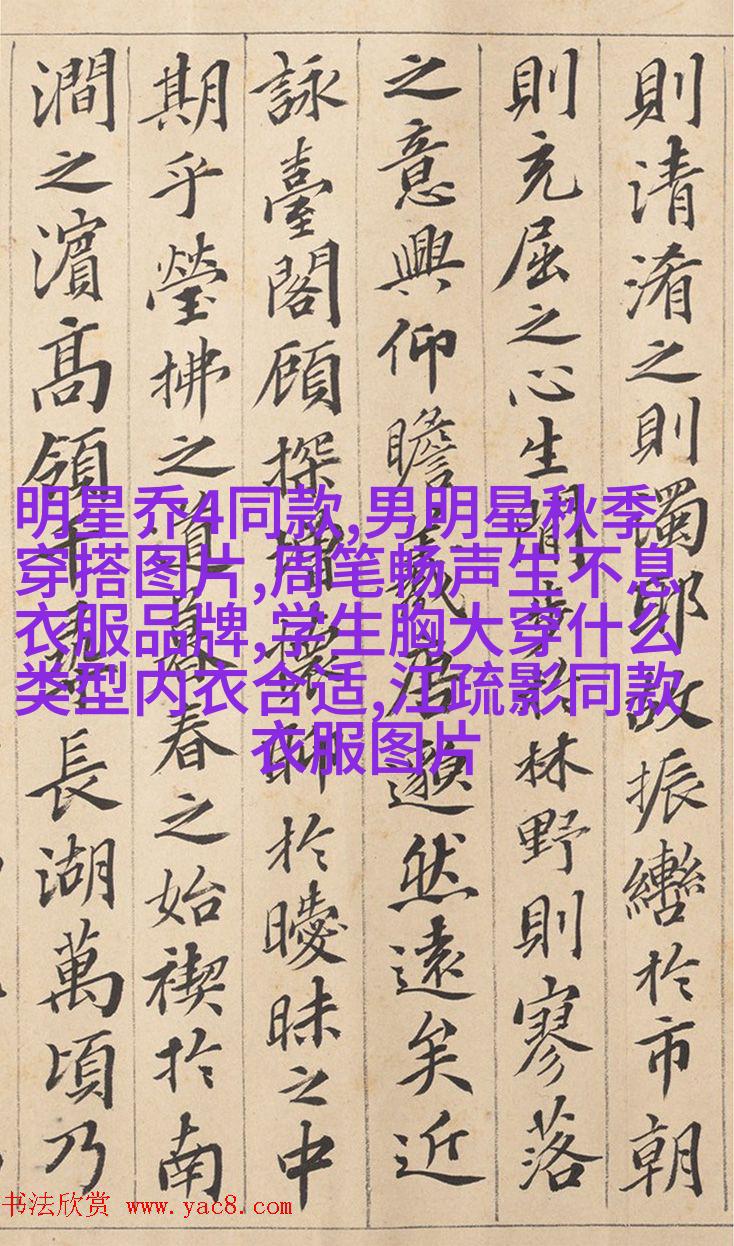 則清淆之則濁耶故振轡於市朝
則充屈之心生閒步於林野則寥落
之意興仰瞻羲唐邈然遠矣近
詠臺閣顧探增懷聊於曖昧之中
期乎瑩拂之道暮春之始禊於南
澗之濱高嶺千尋長湖萬頃乃
明星乔4同款,男明星秋季
穿搭图片,周笔畅声生不息
衣服品牌,学生胸大穿什么
类型内衣合适,江疏影同款
衣服图片
书法欣赏 www.yac8.com